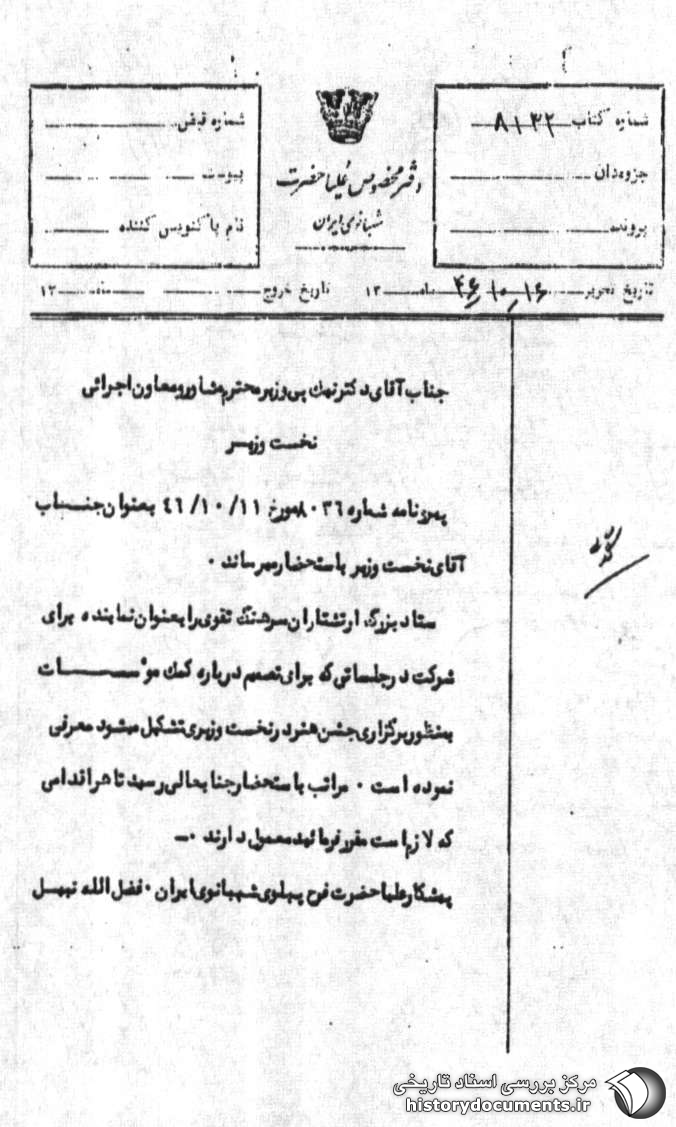 شماره کتاب ۸۱۳۲
جزوه‌دان
پرونده
دفتر مخصوص علیاحضرت
شهبانوی ایران
شماره قبض
پیوست
نام پاکنویس کننده
تاریخ تحریر ۱۶ر۱۰ر۴۶ ماه ۱۳ تاریخ خروج ماه ۱۳
جناب آقای دکتر نیک پی وزیر محترم مشاور و معاون اجرائی
نخست وزیر
پیرو نامه شماره ۸۰۳۶ مورخ ۴۶/۱۰/۱۱ بعنوان جنــاب
آقای نخست وزیر باستحضار میرساند ۰
ستاد بزرگ ارتشتاران سرهنگ تقوی را بعنوان نماینده برای
شرکت در جلساتی که برای تصمیم درباره کمک موســـــات
بمنظور برگزاری جشن هنر در نخست وزیری تشکیل میشود معرفی
نموده است ۰ مراتب باستحضار جنابعالی رسید تا هر اقدامی
که لازم است مقرر فرمائید معمول دارند ۰ــ
پیشکار علیاحضرت فرح پهلوی شهبانوی ایران ۰ فضل الله نبیــل
مرکز بررسی اسناد تاریخی
historydocuments.ir